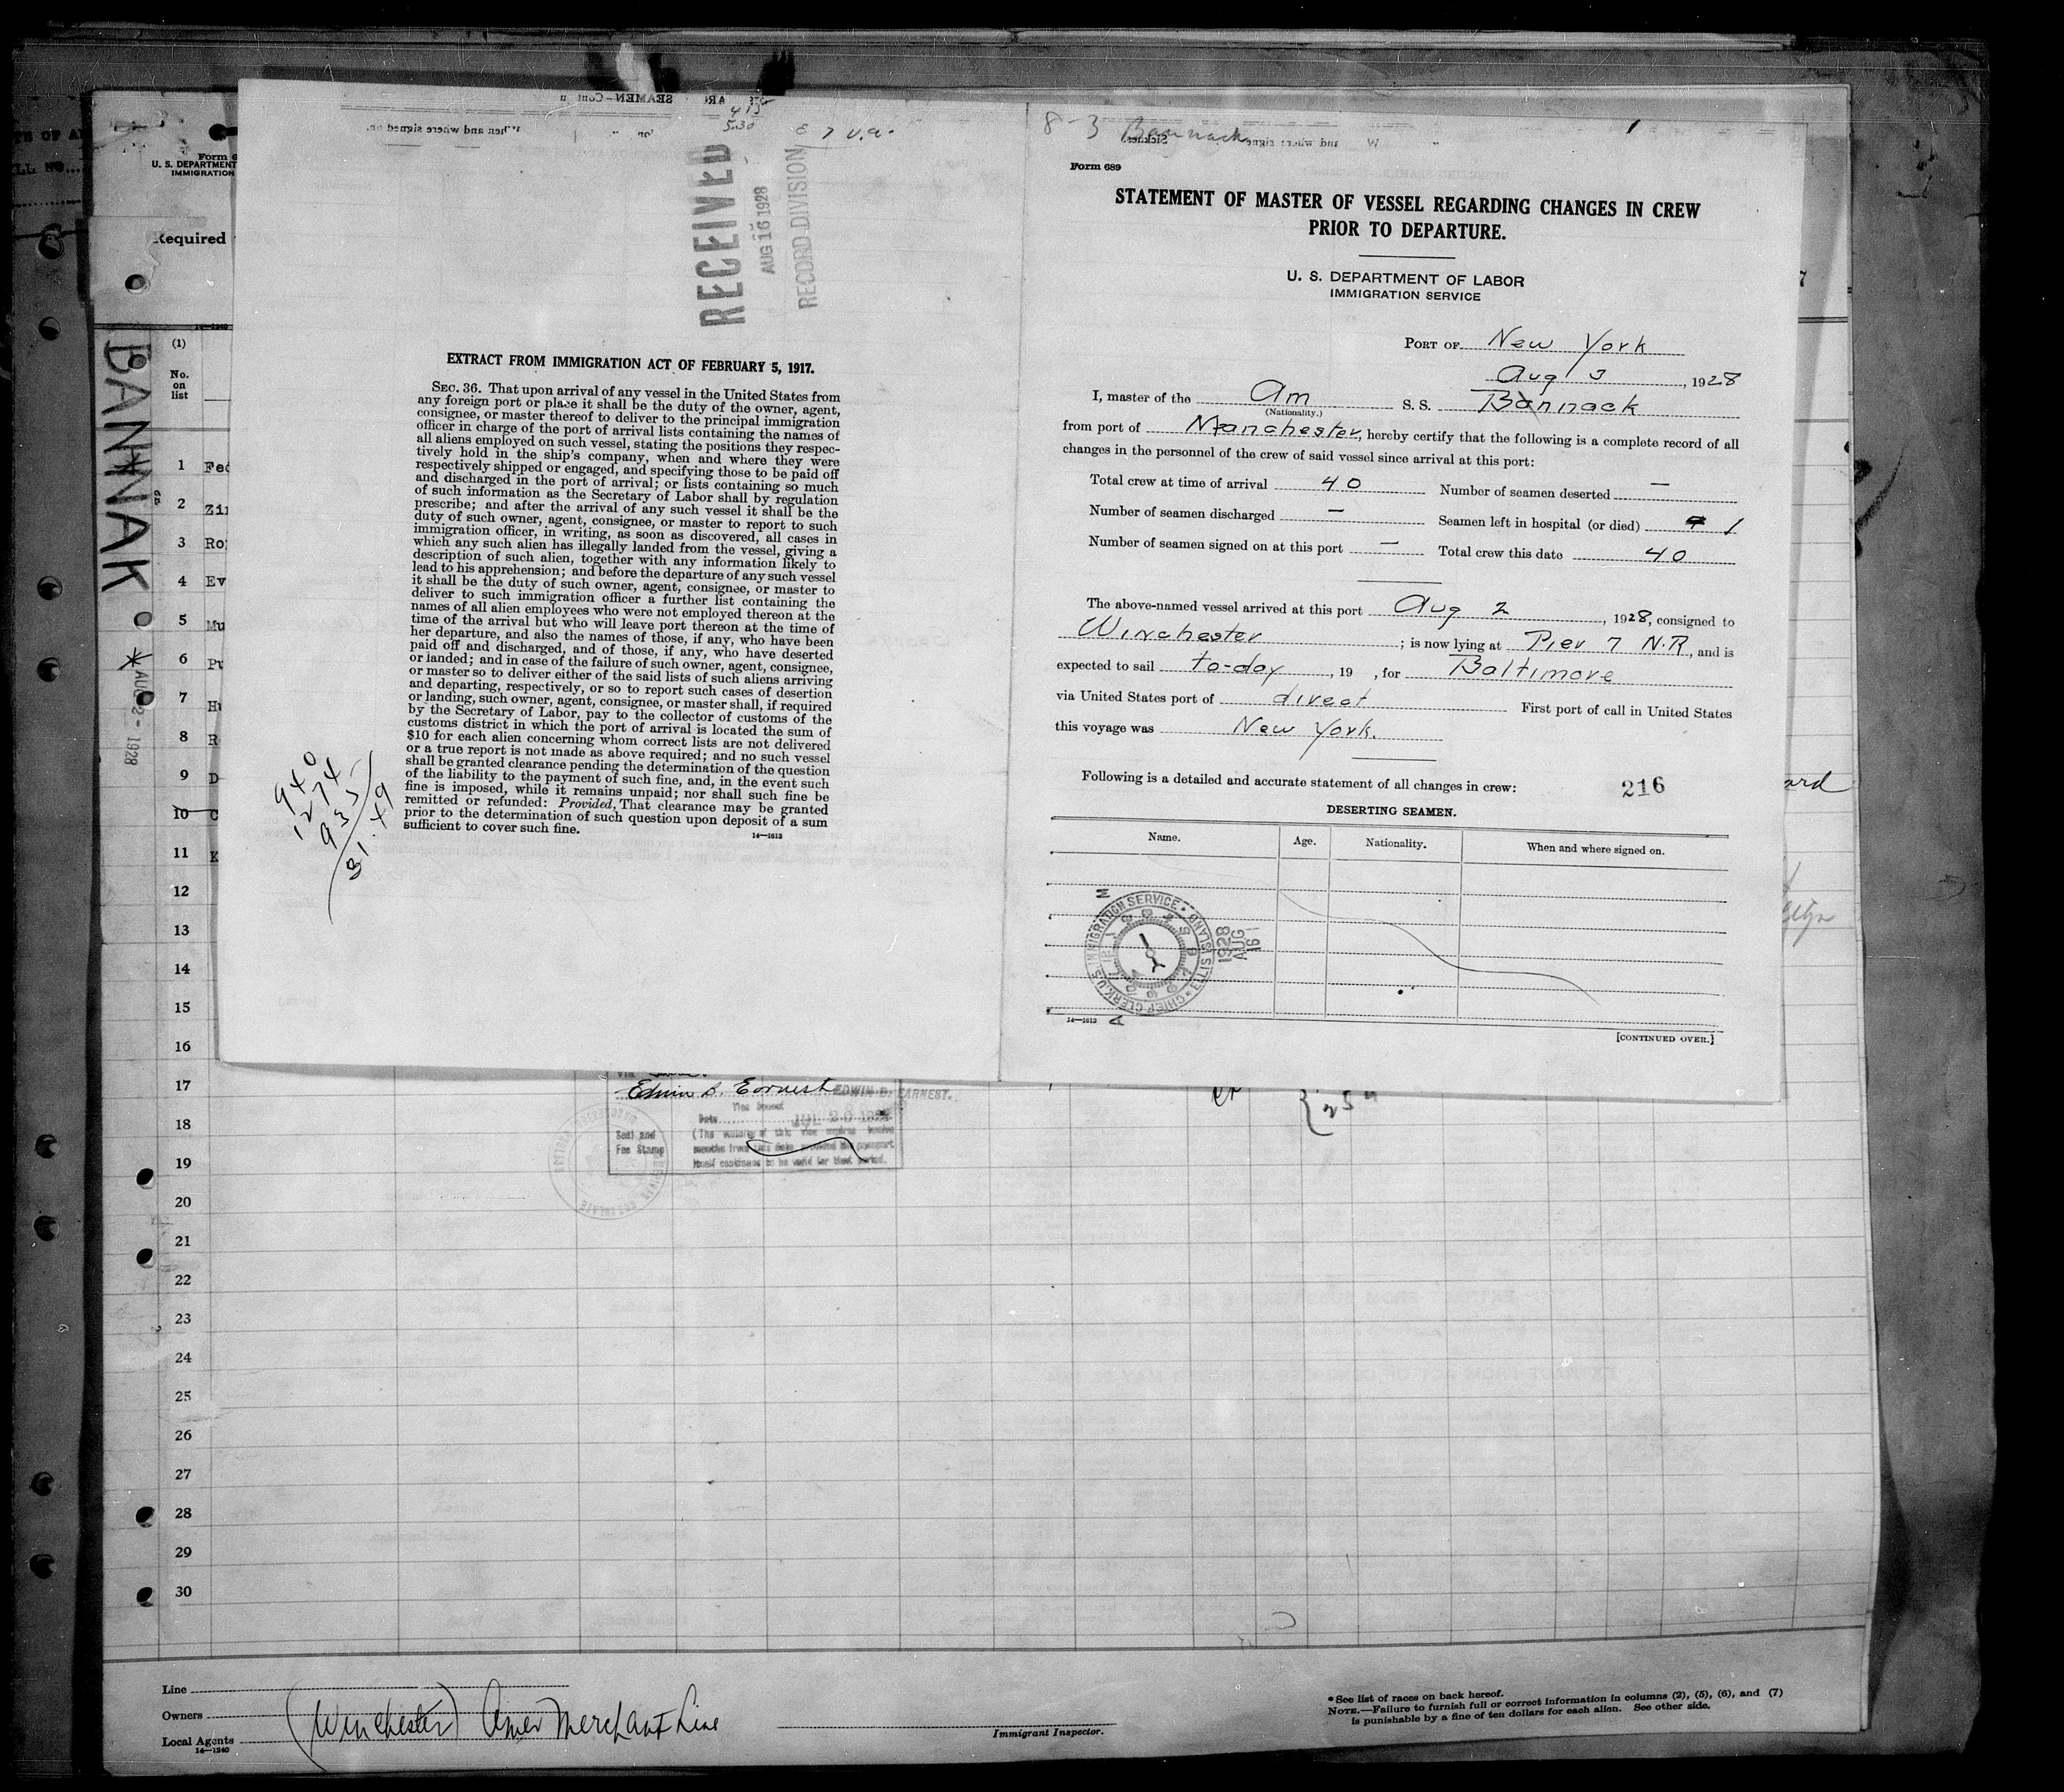 Form 689
STATEMENT OF MASTER OF VESSEL REGARDING CHANGES IN CREW
PRIOR TO DEPARTURE.
U. S. DEPARTMENT OF LABOR
IMMIGRATION SERVICE
PORT OF New York
Aug 3, 1928
I, master of the Am S. S. Bannack
(Nationality.)
from port of Manchester, hereby certify that the following is a complete record of all
changes in the personnel of the crew of said vessel since arrival at this port:
Total crew at time of arrival 40 Number of seamen deserted —
Number of seamen discharged — Seamen left in hospital (or died) 1
Number of seamen signed on at this port — Total crew this date 40
The above-named vessel arrived at this port Aug 2, 1928, consigned to
Winchester; is now lying at Pier 7 N.R, and is
expected to sail to-day, 19 , for Baltimore
via United States port of direct First port of call in United States
this voyage was New York.
Following is a detailed and accurate statement of all changes in crew: 216
DESERTING SEAMEN.
Name. Age. Nationality. When and where signed on.
CHIEF CLERK U.S. IMMIGRATION SERVICE • ELLIS ISLAND
1928
AUG
16
14—1613
[CONTINUED OVER.]
8-3 Bannack
RECEIVED
AUG 16 1928
RECORD DIVISION
EXTRACT FROM IMMIGRATION ACT OF FEBRUARY 5, 1917.
SEC. 36. That upon arrival of any vessel in the United States from
any foreign port or place it shall be the duty of the owner, agent,
consignee, or master thereof to deliver to the principal immigration
officer in charge of the port of arrival lists containing the names of
all aliens employed on such vessel, stating the positions they respec-
tively hold in the ship's company, when and where they were
respectively shipped or engaged, and specifying those to be paid off
and discharged in the port of arrival; or lists containing so much
of such information as the Secretary of Labor shall by regulation
prescribe; and after the arrival of any such vessel it shall be the
duty of such owner, agent, consignee, or master to report to such
immigration officer, in writing, as soon as discovered, all cases in
which any such alien has illegally landed from the vessel, giving a
description of such alien, together with any information likely to
lead to his apprehension; and before the departure of any such vessel
it shall be the duty of such owner, agent, consignee, or master to
deliver to such immigration officer a further list containing the
names of all alien employees who were not employed thereon at the
time of the arrival but who will leave port thereon at the time of
her departure, and also the names of those, if any, who have been
paid off and discharged, and of those, if any, who have deserted
or landed; and in case of the failure of such owner, agent, consignee,
or master so to deliver either of the said lists of such aliens arriving
and departing, respectively, or so to report such cases of desertion
or landing, such owner, agent, consignee, or master shall, if required
by the Secretary of Labor, pay to the collector of customs of the
customs district in which the port of arrival is located the sum of
$10 for each alien concerning whom correct lists are not delivered
or a true report is not made as above required; and no such vessel
shall be granted clearance pending the determination of the question
of the liability to the payment of such fine, and, in the event such
fine is imposed, while it remains unpaid; nor shall such fine be
remitted or refunded: Provided, That clearance may be granted
prior to the determination of such question upon deposit of a sum
sufficient to cover such fine.
14—1613
Form 6
U. S. DEPARTMENT
IMMIGRATION
Required
14—1240
BANNAK
AUG 2 - 1928
(1)
No.
on
list
1 Fed
2 Zi
3 Ro
4 Ev
5 Mu
6 Pu
7 Hu
8 R
9 D
10 C
11 K
12
13
14
15
16
17
18
19
20
21
22
23
24
25
26
27
28
29
30
EDWIN D. EARNEST.
Visa Issued
Date JUL 20 1928
Seal and
Fee Stamp
(The validity of this visa expires twelve
months from this date provided the passport
itself continues to be valid for that period.
Line
Owners
Local Agents
(Winchester) Amer Merchant Line
14—1240
Immigrant Inspector.
*See list of races on back hereof.
NOTE.—Failure to furnish full or correct information in columns (2), (5), (6), and (7)
is punishable by a fine of ten dollars for each alien. See other side.